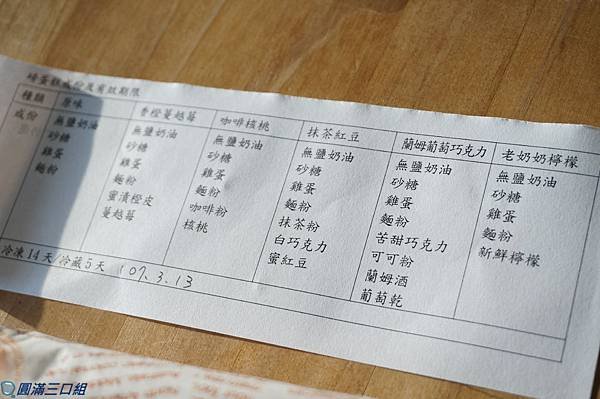 磅蛋糕成份及有效期限
種類 原味 香橙蔓越莓 咖啡核桃 抹茶紅豆 蘭姆葡萄巧克力 老奶奶檸檬
成份 無鹽奶油 無鹽奶油 無鹽奶油 無鹽奶油 無鹽奶油 無鹽奶油
砂糖 砂糖 砂糖 砂糖 砂糖 砂糖
雞蛋 雞蛋 雞蛋 雞蛋 雞蛋 雞蛋
麵粉 麵粉 麵粉 麵粉 麵粉 麵粉
蜜漬橙皮 咖啡粉 抹茶粉 苦甜巧克力 新鮮檸檬
蔓越莓 核桃 白巧克力 可可粉
蜜紅豆 蘭姆酒
葡萄乾
冷凍14天/冷藏5天 107.3.13
圓滿三口組